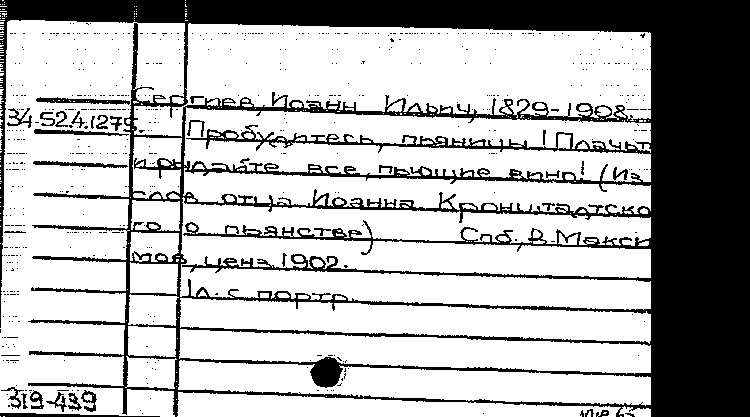 Сергиев, Иоанн Ильич, 1829-1908.
34.524.1275.
Пробудитесь, пьяницы! Плачьт
и рыдайте все, пьющие вино! (Из
слов отца Иоанна Кронштадтско
го о пьянстве) Спб., В. Макси
мов, ценз. 1902.
1л. с портр.
319-439